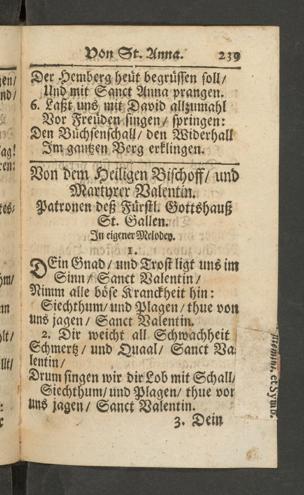 Von St. Anna. 239
Der Hemberg heüt begrüssen soll/
Und mit Sanct Anna prangen.
6. Laßt uns mit David allzumahl
Vor Freüden singen/ springen:
Den Büchsenschall/ den Widerhall
Im gantzen Berg erklingen.
Von dem Heiligen Bischoff/ und
Martyrer Valentin.
Patronen deß Fürstl. Gottshauß
St. Gallen.
In eigener Melodey.
1.
DEin Gnad/ und Trost ligt uns im
Sinn/ Sanct Valentin/
Nimm alle böse Kranckheit hin:
Siechthum/ und Plagen/ thue von
uns jagen/ Sanct Valentin.
2. Dir weicht all Schwachheit
Schmertz/ und Quaal/ Sanct Va
lentin/
Drum singen wir dir Lob mit Schall/
Siechthum/ und Plagen/ thue vor
uns jagen/ Sanct Valentin.
3. Dein